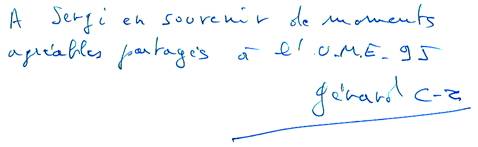 A Sergi en souvenir de moments
agréables partagés à l'U.M.E. 95
Gérard C-Z